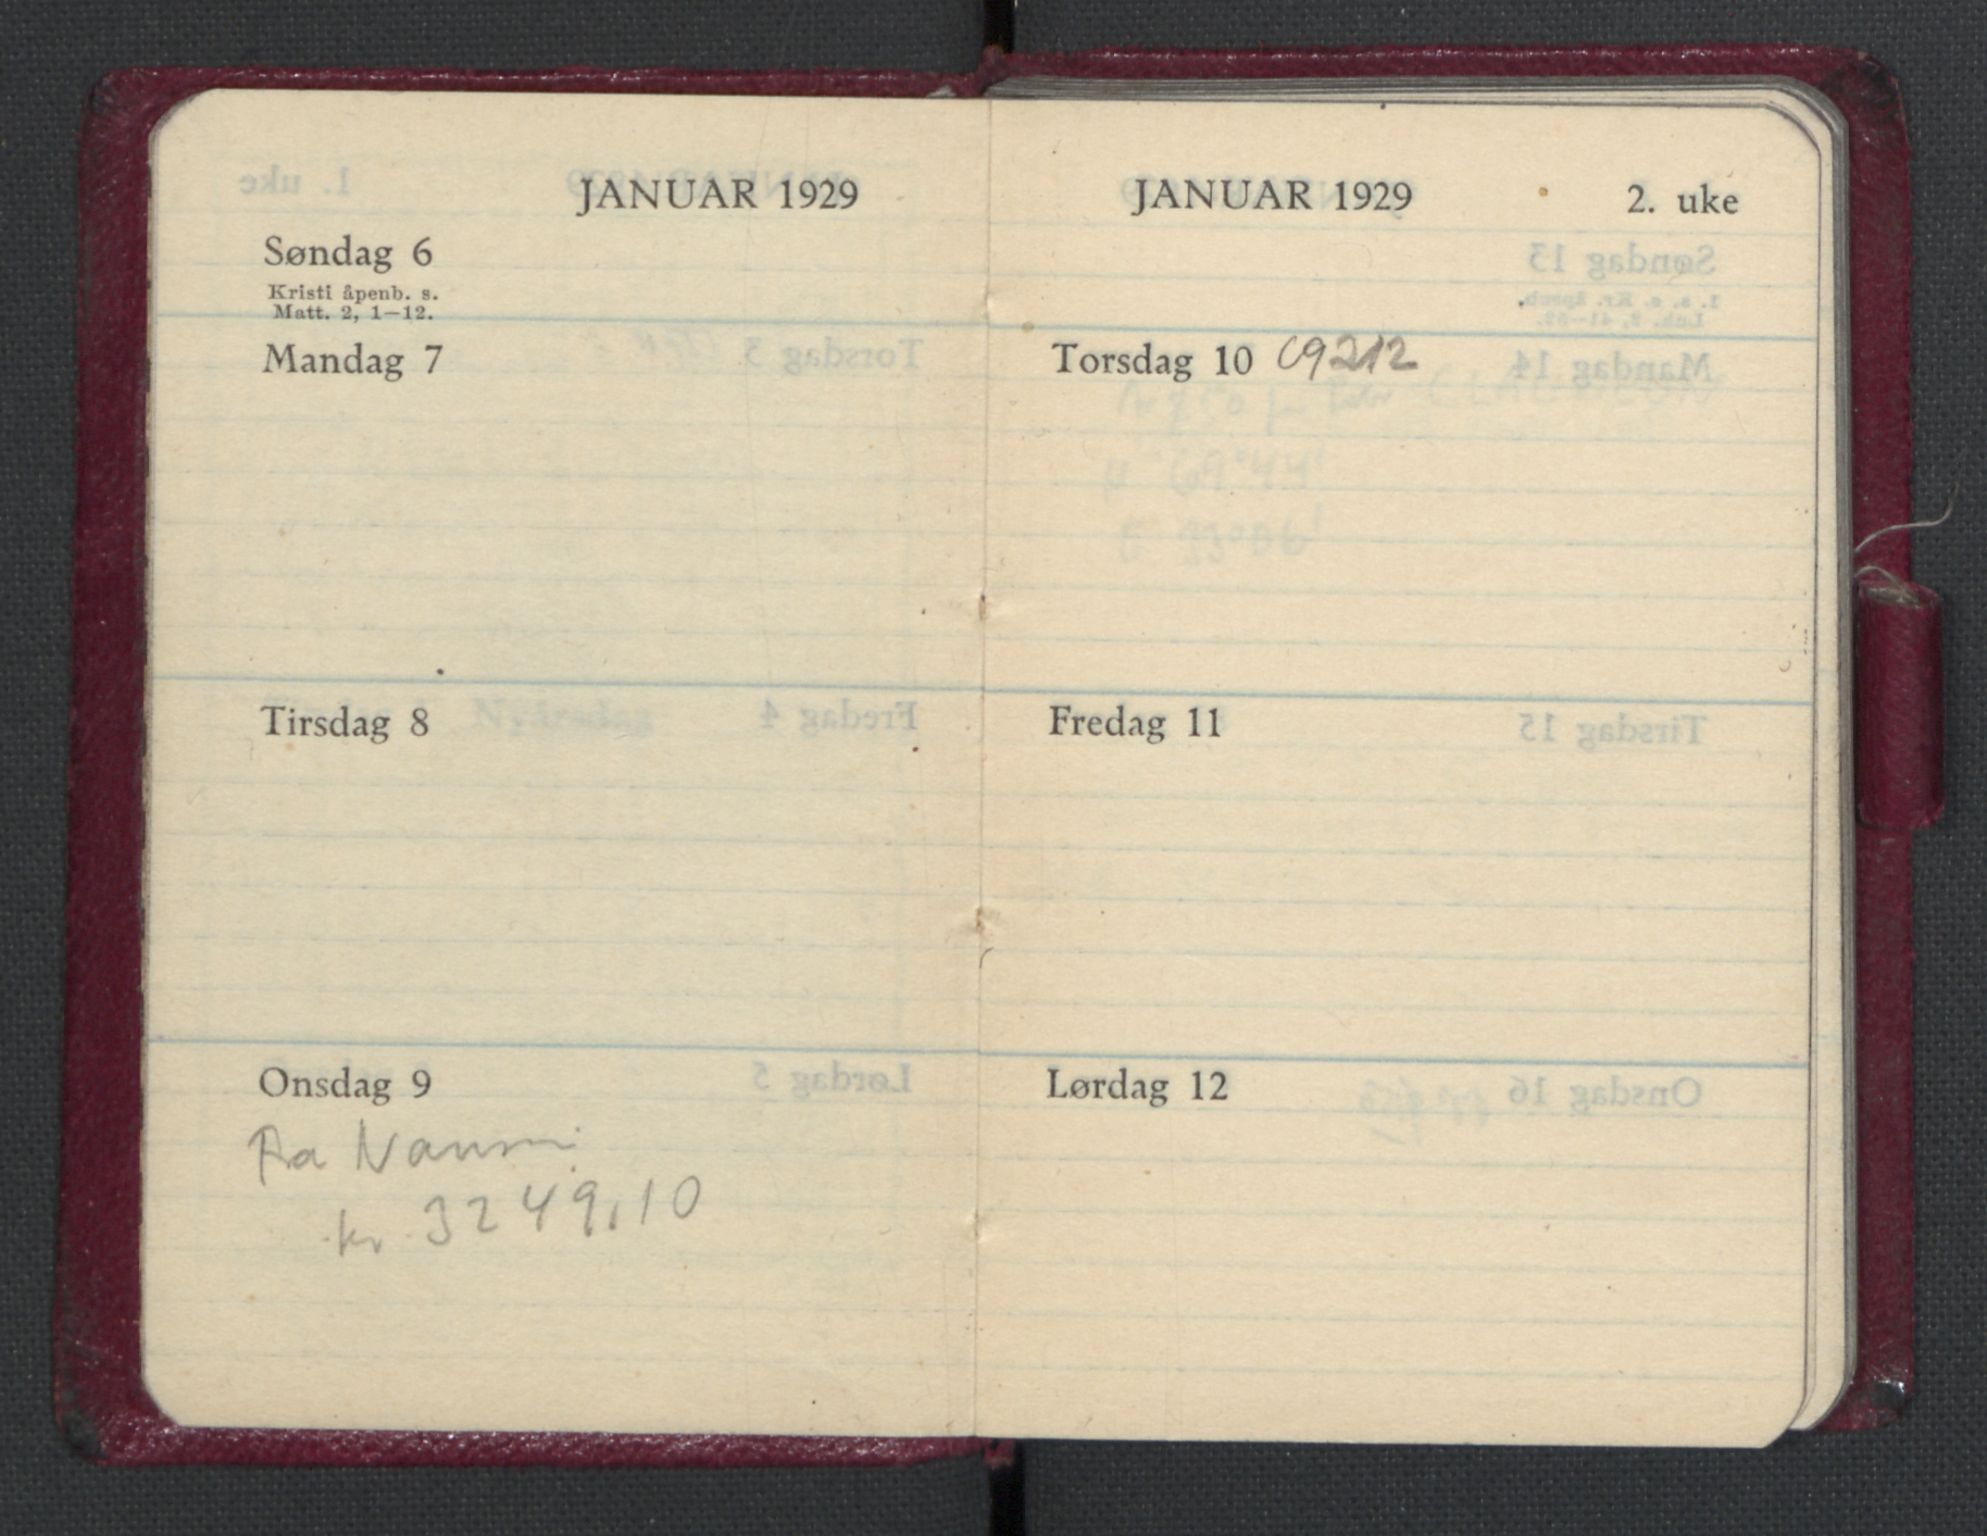 JANUAR 1929
Søndag 6
Kristi åpenb. s.
Matt. 2, 1—12.
Mandag 7
Tirsdag 8
Onsdag 9
Fra
kr 3249,10
JANUAR 1929 2. uke
Torsdag 10
Fredag 11
Lørdag 12